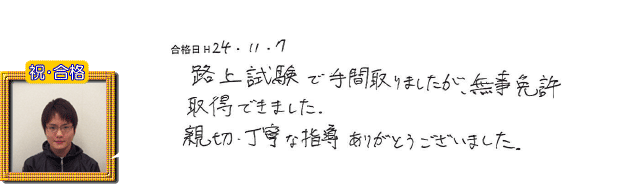 合格日H24.11.7
祝・合格
路上試験で手間取りましたが、無事免許
取得できました.
親切・丁寧な指導ありがとうございました。